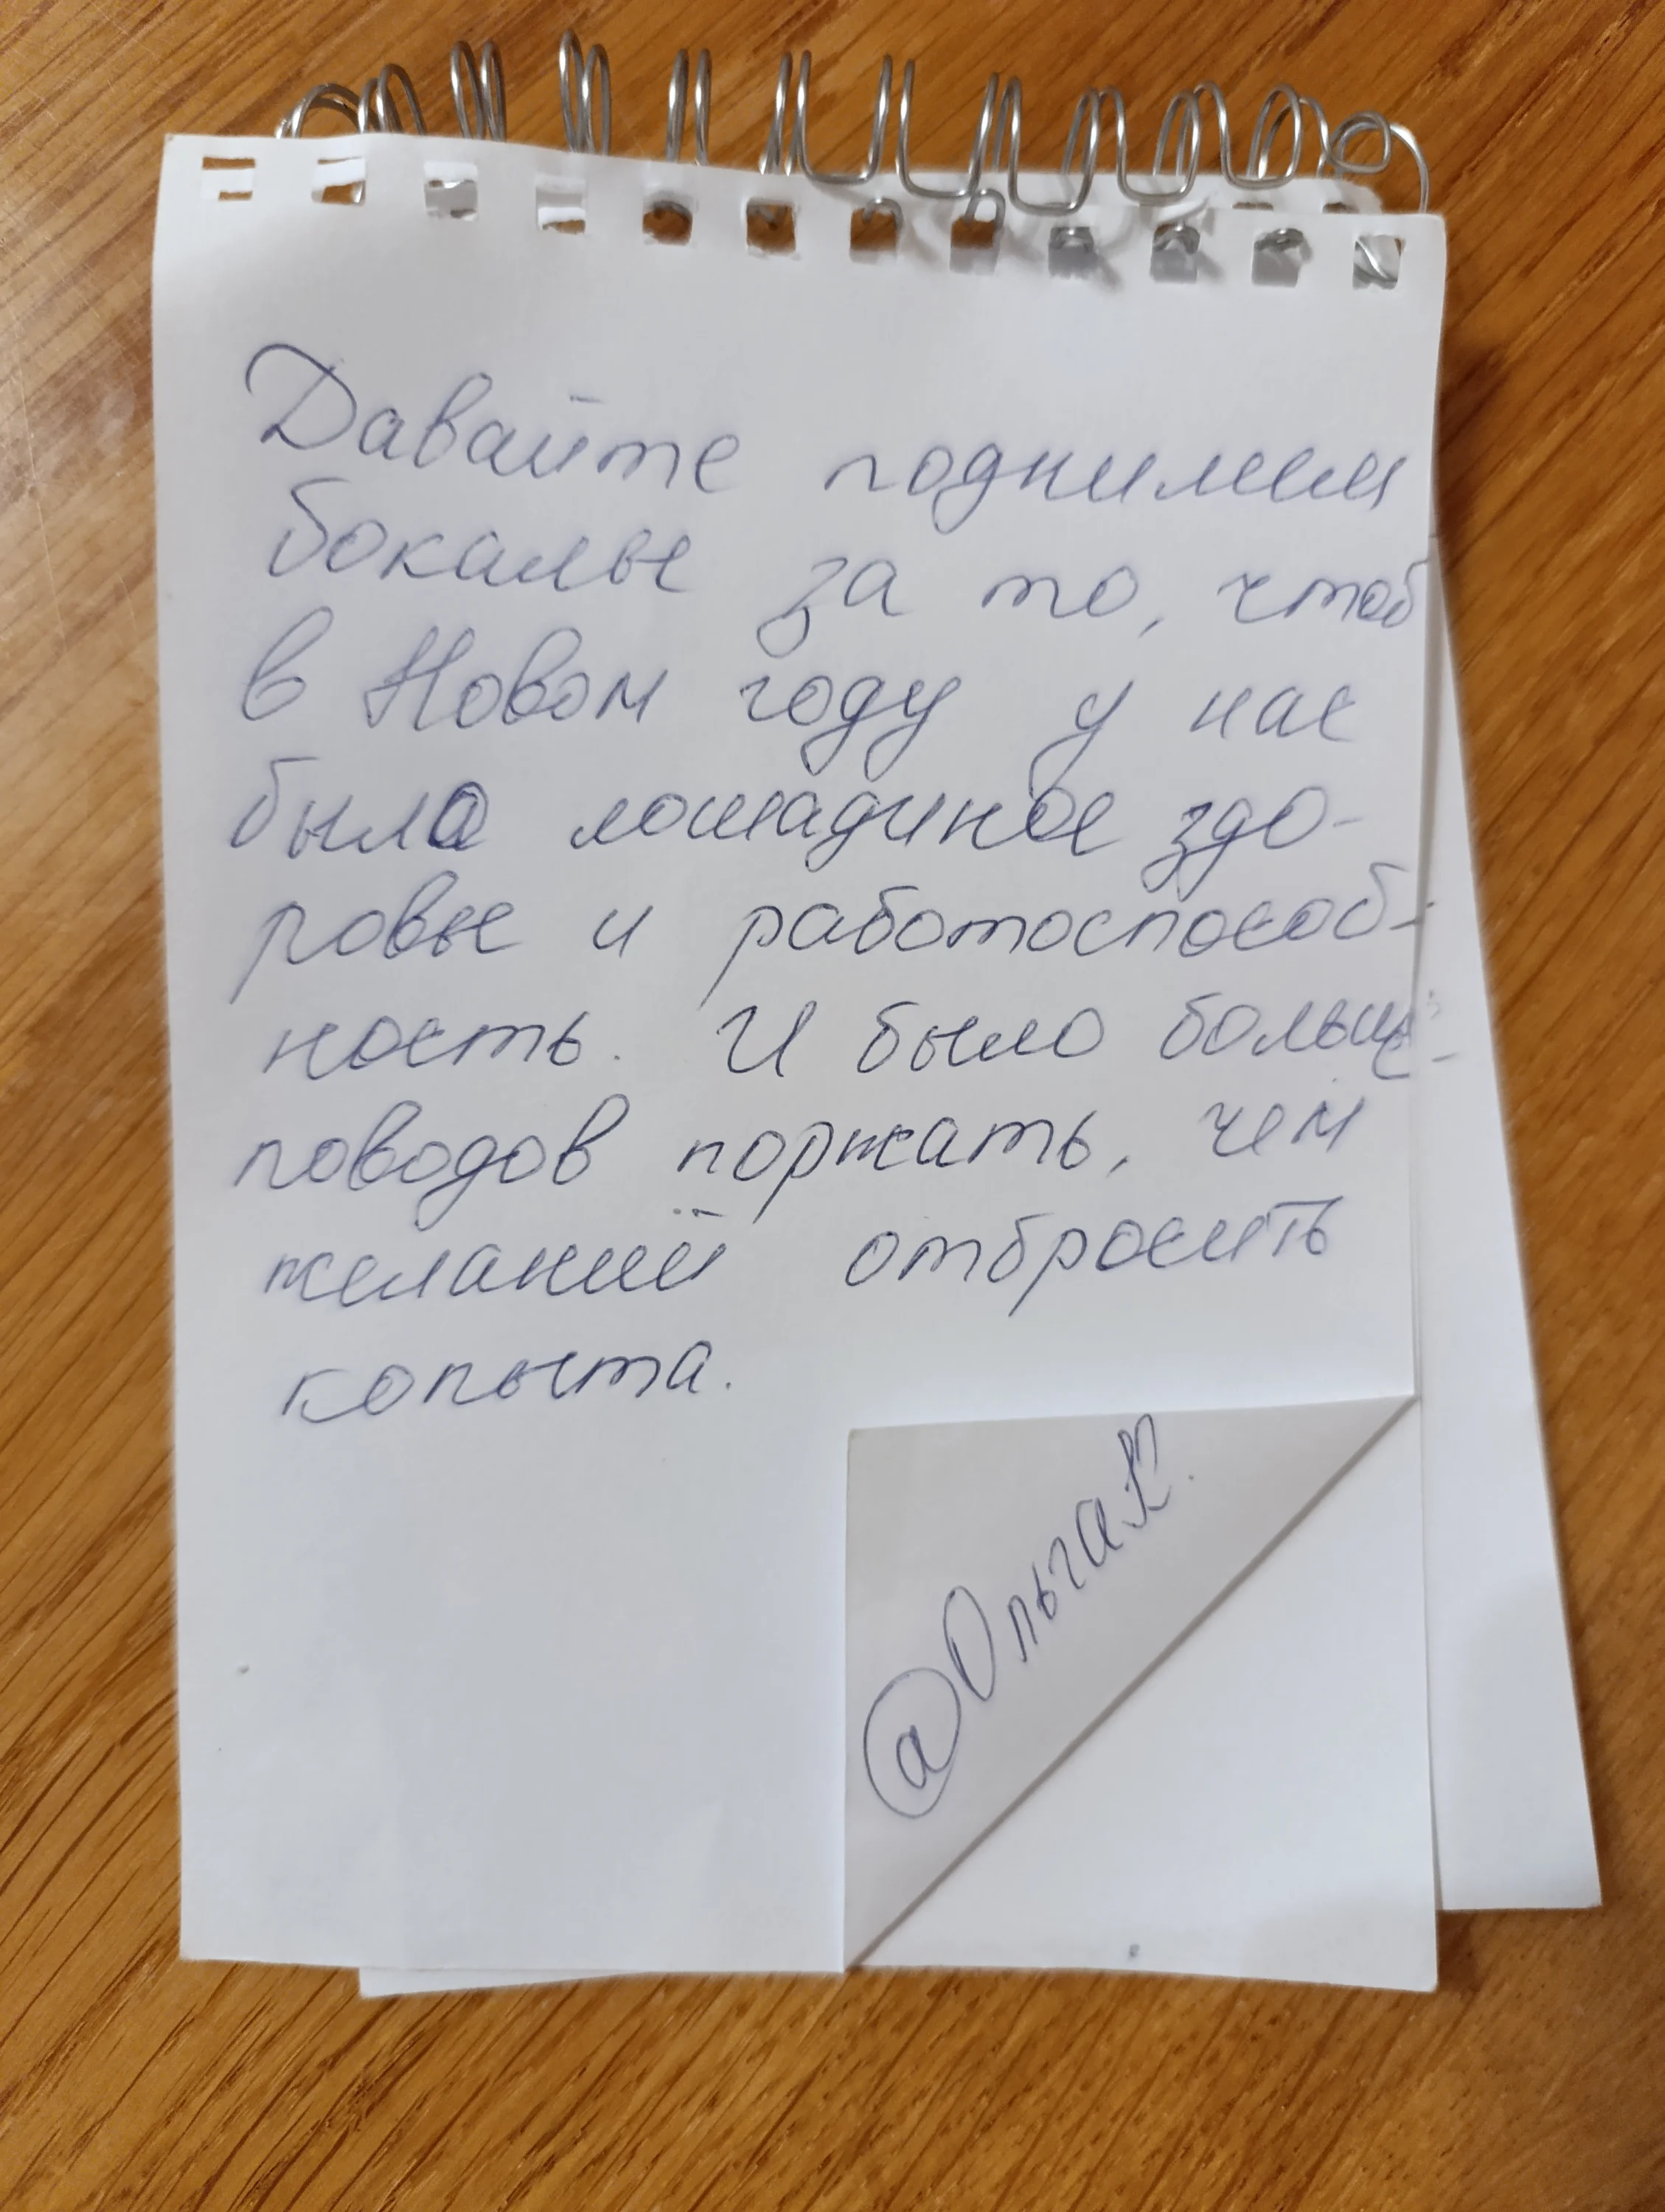 Давайте поднимем
бокалы за то, чтоб
в Новом году у нас
было лошадиное здо-
ровье и работоспособ-
ность. И было больше
поводов поржать, чем
желаний отбросить
копыта.
@ОльгаК.